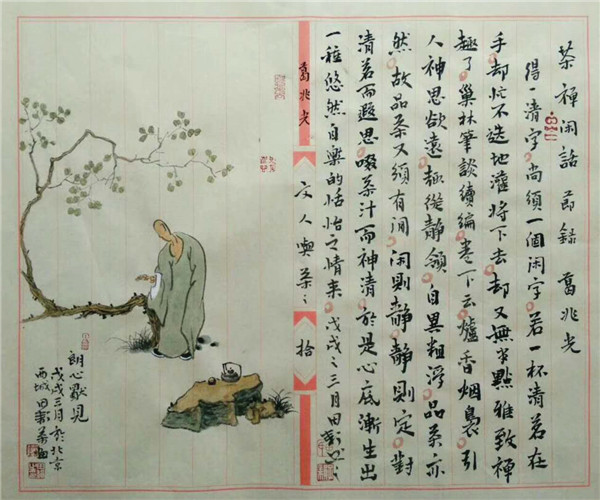 茶禅闲話 节録 葛兆光
得一清字尚须一個闲字若一杯清茗在
手却忙不迭地灌将下去却又無半點雅致禅
趣了巢林筆談續编卷下云爐香烟裊引
人神思欲遠趣從静领自異粗浮品茶亦
然故品茶又须有闲闲则静静则定對
清茗而遐思啜茶汁而神清於是心底漸生出
一種悠然自樂的恬怡之情来戊戌之三月田
葛兆光
文人喫茶之
拾
朗心默見
戊戌三月於北京
西城田